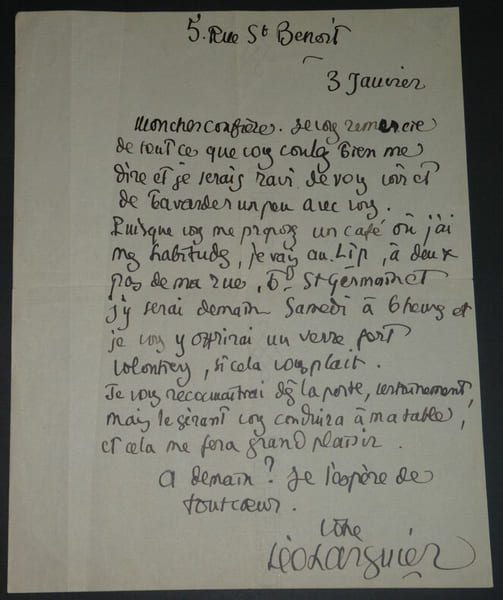 5. Rue St Benoit
3 Janvier
Mon cher confrère. Je vous remercie
de tout ce que vous voulez bien me
dire et je serais ravi de vous voir et
de bavarder un peu avec vous.
Puisque vous me proposez un café où j'ai
mes habitudes, je vais au Lip, à deux
pas de ma rue, Bd St Germain et
j'y serai demain Samedi à 6 heures et
je vous y offrirai un verre fort
volontiers, si cela vous plait.
Je vous reconnaîtrai dès la porte, certainement,
mais le gérant vous conduira à ma table,
et cela me fera grand plaisir.
A demain? Je l'espère de
tout cœur.
Votre
Léo Larguier